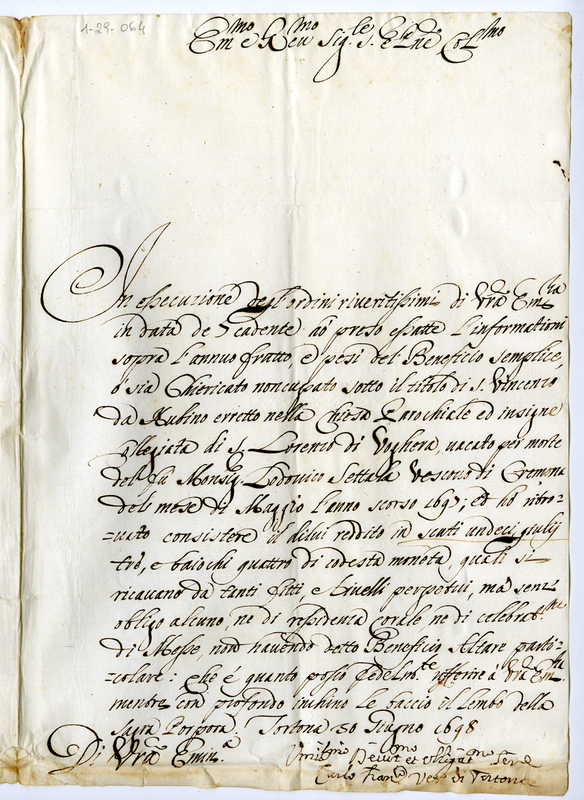 1-29-064
Em.mo e Reu.mo Sig.re S.r e P.ne Col.mo
In essecuzione degl'ordini riueritissimi di Vrã Em.za
in data de 7 cadente hò preso essatte l'informationi
sopra l'annuo frutto, e pesi del Beneficio semplice,
ò sia Chiericato noncupato sotto il titolo di S. Vincenzo
da Rubino erretto nella Chiesa Parochiale ed insigne
Collegiata di S. Lorenzo di Voghera, uacato per morte
del fù Monsig. Lodouico Settala Vescouo di Cremona
del mese di Maggio l'anno scorso 1697; ed hò ritro-
-uato consistere il dilui reddito in scuti undeci giulij
trè, e baiochi quattro di codesta moneta, quali si
ricauano da tanti fitti e liuelli perpetui, mà senz'
obligo alcuno, ne di residenza corale ne di celebrat.ne
di Messe, non hauendo detto Beneficio Altare parti-
-colare: che è quanto posso fedelm.te refferire a Vrã Em.za
mentre con profondo inchino le baccio il lembo della
Sacra Porpora. Tortona 30 Giugno 1698
Di Vrã Emin.a
Vmil.mo Deuot.mo et obligat.mo Seru.e
Carlo Fran.co Vesc.o di Tortona